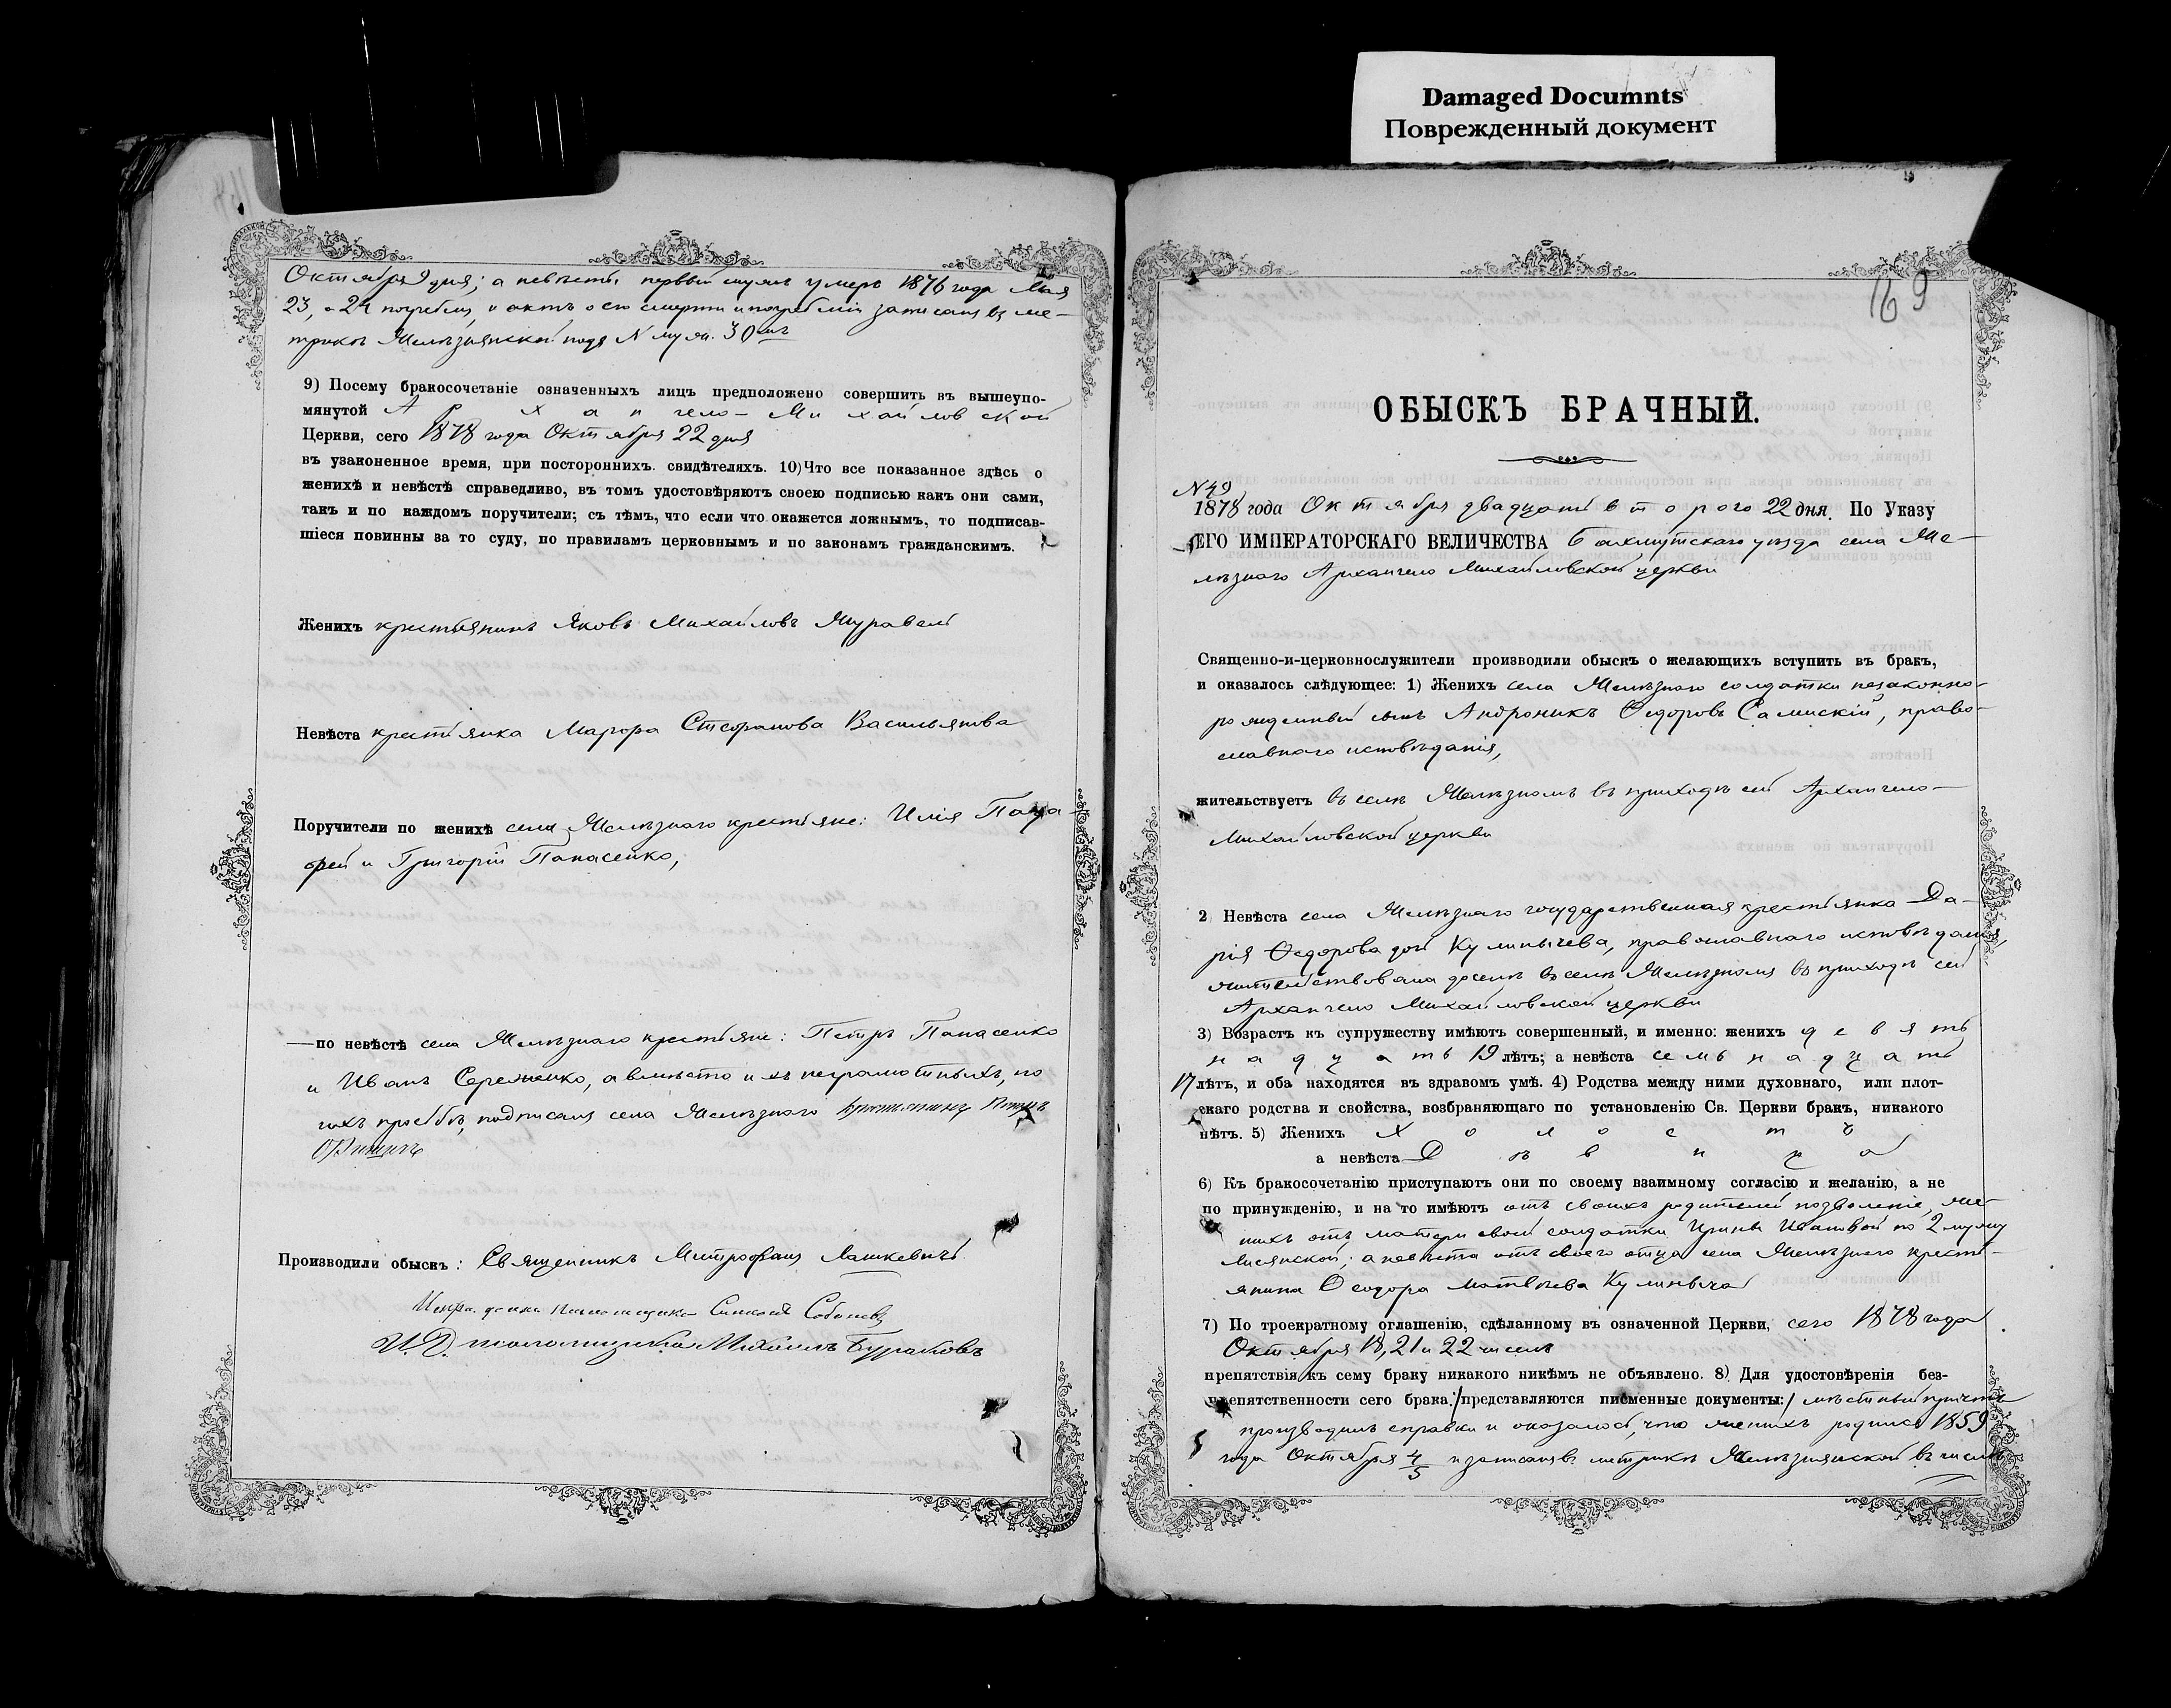 Damaged Documnts
Поврежденный документ
Октября 9 дня; а невѣсты первый мужъ умеръ 1876 года Мая
23, а 24 погребенъ, и актъ о его смерти и погребеніи записанъ въ ме-
трикѣ Желѣзнянской подъ N муж. 30мъ
9) Посему бракосочетаніе означенныхъ лицъ предположено совершить въ вышеупо-
мянутой Архангело-Михайловской
Церкви, сего 1878 года Октября 22 дня
въ узаконенное время, при постороннихъ. свидѣтеляхъ. 10) Что все показанное здѣсь о
женихѣ и невѣстѣ справедливо, въ томъ удостовѣряютъ своею подписью какъ они сами,
такъ и по каждомъ поручители; съ тѣмъ, что если что окажется ложнымъ, то подписав-
шіеся повинны за то суду, по правиламъ церковнымъ и по законамъ гражданскимъ.
Женихъ крестьянинъ Яковъ Михайловъ Журавель
Невѣста крестьянка Марфа Стефанова Васильянова
Поручители по женихѣ села Желѣзнаго крестьяне: Илія
и Григорій Панасенко,
— по невѣстѣ села Желѣзнаго крестьяне: Петръ Панасенко
и Иванъ Сереженко, а вмѣсто ихъ неграмотныхъ, по
ихъ просьбѣ, подписался села Желѣзнаго крестьянинъ
Производили обыскъ: Священникъ Митрофанъ Лашкевичъ
И. Д. псаломщика Михаилъ Бураковъ
169
ОБЫСКЪ БРАЧНЫЙ.
N 49
1878 года Октября двадцать второго 22 дня. По Указу
ЕГО ИМПЕРАТОРСКАГО ВЕЛИЧЕСТВА Бахмутскаго уѣзда села Же-
лѣзнаго Архангело Михайловской церкви
Священно-и-церковнослужители производили обыскъ о желающихъ вступить въ бракъ,
и оказалось слѣдующее: 1) Женихъ села Желѣзнаго солдатки незаконно-
рожденный сынъ Андроникъ Ѳедоровъ Салмскій, право-
славнаго исповѣданія,
жительствуетъ въ селѣ Желѣзномъ въ приходѣ сей Архангело-
Михайловской церкви
2) Невѣста села Желѣзнаго государственная крестьянка Да-
рія Ѳедорова дочь Кулинычева, православнаго исповѣданія,
жительствовала доселѣ въ селѣ Желѣзномъ въ приходѣ сей
Архангело Михайловской церкви
3) Возрастъ къ супружеству имѣютъ совершенный, и именно: женихъ девят
надцать 19 лѣтъ; а невѣста семьнадцать
17 лѣтъ, и оба находятся въ здравомъ умѣ. 4) Родства между ними духовнаго, или плот-
скаго родства и свойства, возбраняющаго по установленію Св. Церкви бракъ, никакого
нѣтъ. 5) Женихъ Холостъ
а невѣста Дѣвица
6) Къ бракосочетанію приступаютъ они по своему взаимному согласію и желанію, а не
по принужденію, и на то имѣютъ отъ своихъ родителей позволеніе, же-
нихъ отъ матери своей солдатки Ирины Ивановой по 2 мужу
а невѣста отъ своего отца села Желѣзнаго кресть-
янина Ѳеодора Матвѣева Кулиныча
7) По троекратному оглашенію, сдѣланному въ означенной Церкви, сего 1878 года
Октября 18, 21 и 22 чиселъ
препятствія къ сему браку никакого никѣмъ не объявлено. 8) Для удостовѣренія без-
препятственности сего брака:/представляются писменные документы:/ мѣстный причтъ
производилъ справки и оказалось, что женихъ родился 1859
года Октября 4/5 и записанъ въ метрикѣ Желѣзнянской въ числѣ